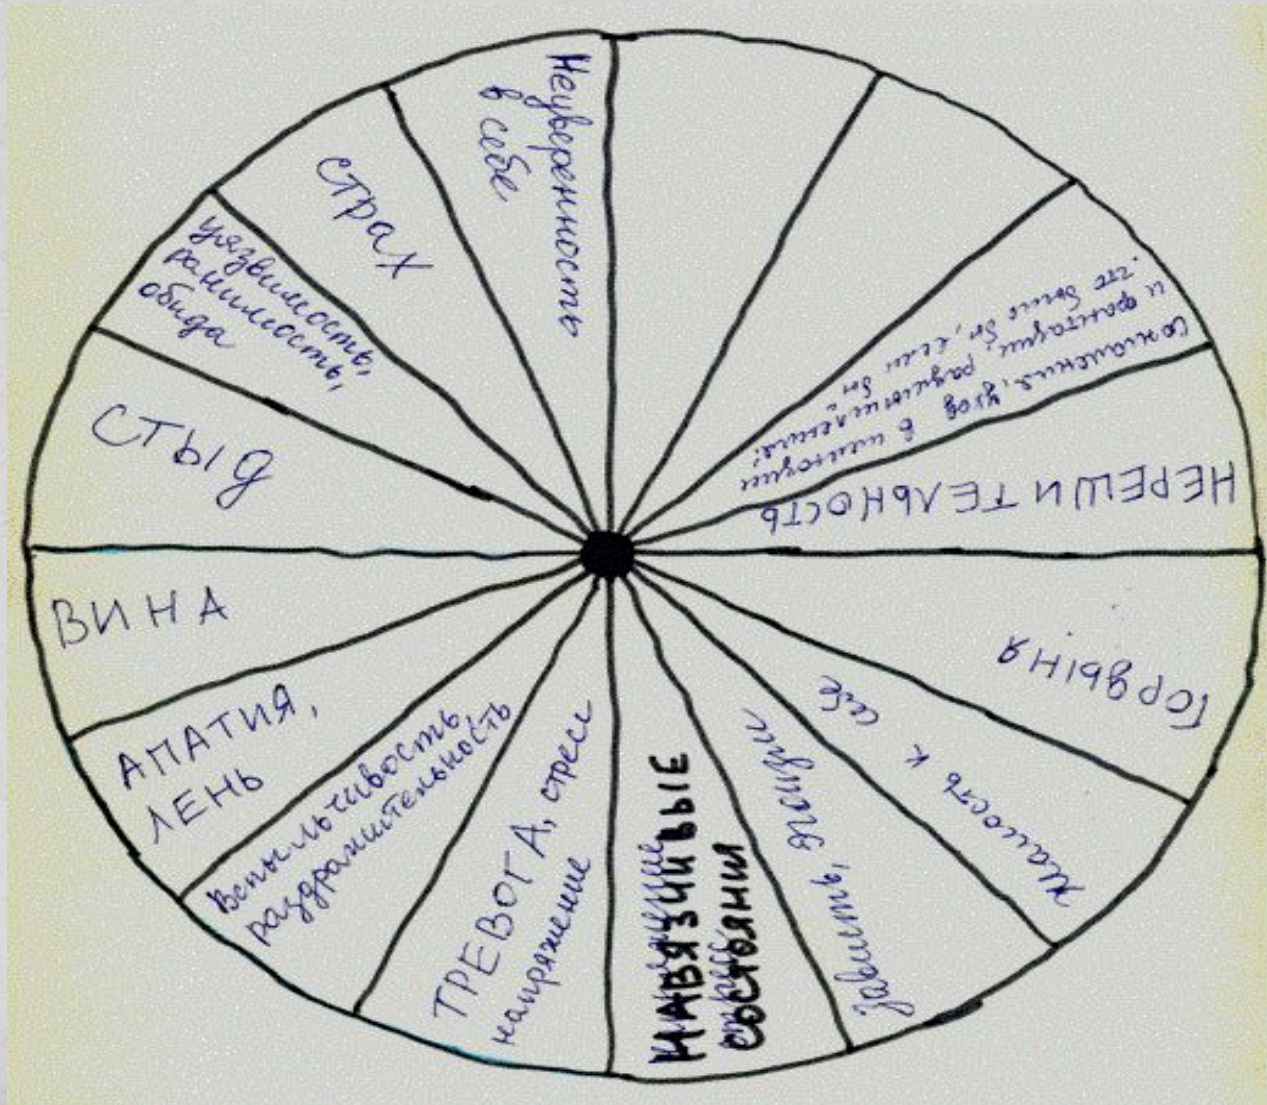 Неуверенность
в себе
страх
уязвимость,
ранимость,
обида
СТЫД
ВИНА
АПАТИЯ,
ЛЕНЬ
Вспыльчивость,
раздражительность
ТРЕВОГА, стресс
напряжение
НАВЯЗЧИВЫЕ
СОСТОЯНИЯ
Зависть, эгоизм
жалость к себе
Гордыня
НЕРЕШИТЕЛЬНОСТЬ
Сожаления, уход в иллюзии
и фантазии, размышления:
что было бы, если бы